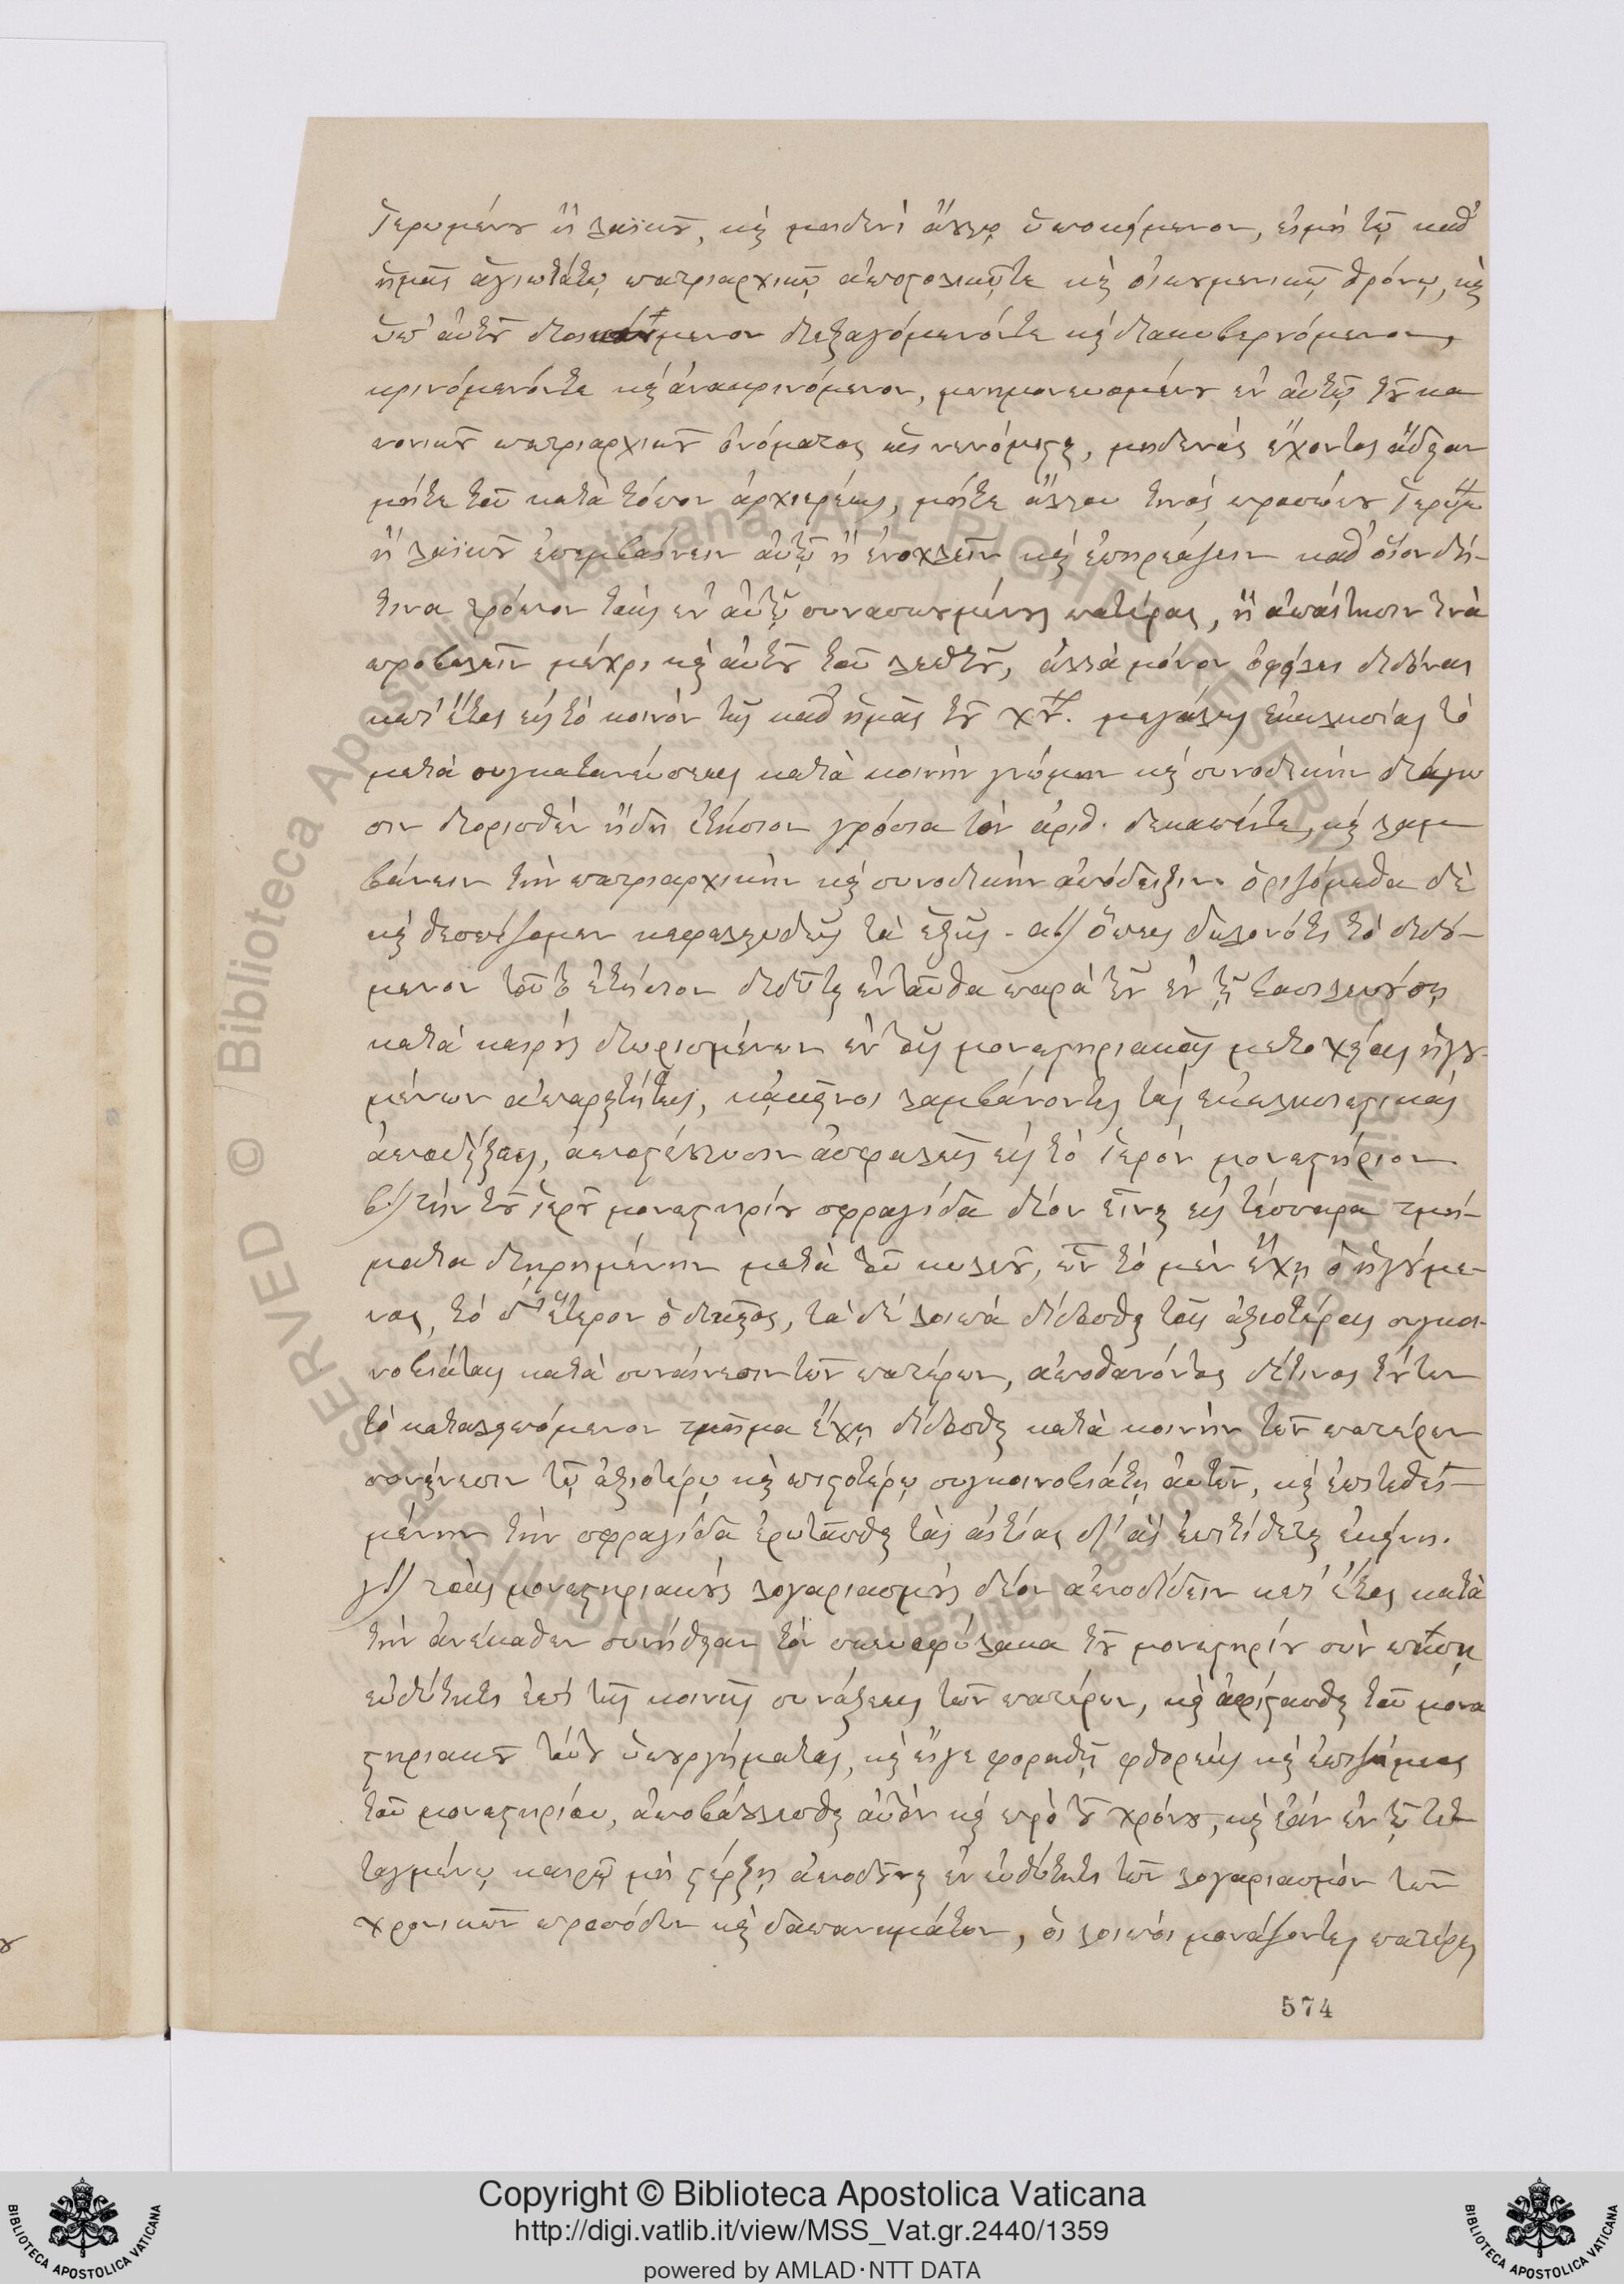 ἱερωμένου ἢ λαϊκοῦ, καὶ μηδενὶ ἄλλῳ ὑποκείμενον, εἰμὴ τῷ καθ'
ἡμᾶς ἁγιωτάτῳ πατριαρχικῷ ἀποστολικῷ τε καὶ οἰκουμενικῷ θρόνῳ, καὶ
ὑπ' αὐτοῦ διοικούμενον διεξαγόμενόν τε καὶ διακυβερνόμενον,
κρινόμενόν τε καὶ ἀνακρινόμενον, μνημονευομένου ἐν αὐτῷ τοῦ κα
νονικοῦ πατριαρχικοῦ ὀνόματος ὡς νενόμισται, μηδενὸς ἔχοντος ἄδειαν
μήτε τοῦ κατὰ τόπον ἀρχιερέως, μήτε ἄλλου τινὸς προσώπου ἱερωμ
ἢ λαϊκοῦ ἐπεμβαίνειν αὐτῷ ἢ ἐνοχλεῖν καὶ ἐπηρεάζειν καθ' οἷον δή-
τινα τρόπον τοὺς ἐν αὐτῷ συνασκουμένους πατέρας, ἢ ἀπαίτησιν τινὰ
προβαλεῖν μέχρι καὶ αὐτοῦ τοῦ λεπτοῦ, ἀλλὰ μόνον ὀφείλει διδόναι
κατ' ἔτος εἰς τὸ κοινὸν τῆς καθ' ἡμᾶς τοῦ χυ. μεγάλης ἐκκλησίας τὸ
μετὰ συγκατανεύσεως κατὰ κοινὴν γνώμην καὶ συνοδικὴν διάγνω
σιν διορισθὲν ἤδη ἐτήσιον γρόσια τὸν ἀριθ. δεκαπέντε, καὶ λαμ
βάνειν τὴν πατριαρχικὴν καὶ συνοδικὴν ἀπόδειξιν. ὁριζόμεθα δὲ
καὶ θεσπίζομεν κεφαλαιωδῶς τὰ ἑξῆς - α) ὅπως δηλονότι τὸ διδό-
μενον τοῦτο ἐτήσιον διδῶται ἐνταῦθα παρὰ τῶν ἐν τῇ βασιλευούσῃ
κατὰ καιροὺς διωρισμένων ἐν τοῖς μοναστηριακοῖς μετοχείοις ἡγου-
μένων ἀπαραιτήτως, κἀκεῖνοι λαμβάνοντες τὰς ἐκκλησιαστικὰς
ἀποδείξεις, ἀποστέλλωσιν ἀσφαλῶς εἰς τὸ ἱερὸν μοναστήριον
β) τὴν τοῦ ἱεροῦ μοναστηρίου σφραγίδα δέον εἶναι εἰς τέσσαρα τμή-
ματα διῃρημένην μετὰ τοῦ κλειοῦ, ὧν τὸ μὲν ἔχῃ ὁ ἡγούμε-
νος, τὸ δ' ἕτερον ὁ δικαῖος, τὰ δὲ λοιπὰ δίδοσθαι τοῖς ἀξιοτέροις συγκοι-
νοβιάταις κατὰ συναίνεσιν τῶν πατέρων, ἀποθανόντος δέ τινος τούτων
τὸ καταλειπόμενον τμῆμα ἔχῃ δίδοσθαι κατὰ κοινὴν τῶν πατέρων
συναίνεσιν τῷ ἀξιοτέρῳ καὶ πιστοτέρῳ συγκοινοβιάτῃ αὐτῶν, καὶ ἐπιτεθει-
μένην τὴν σφραγίδα ἐρωτᾶσθαι τὰς αἰτίας δι' ἃς ἐπιτίθεται ἐκείνη.
γ) τοὺς μοναστηριακοὺς λογαριασμοὺς δέον ἀποδίδειν κατ' ἔτος κατὰ
τὴν ἀνέκαθεν συνήθειαν τὸν σκευοφύλακα τοῦ μοναστηρίου σὺν πάσῃ
εὐθύτητι ἐπὶ τῆς κοινῆς συνάξεως τῶν πατέρων, καὶ ἀφίστασθαι τοῦ μονα
στηριακοῦ τούτου ὑπουργήματος, καὶ εἴγε φοραθῇ φθορεὺς καὶ ἐπιζήμιος
τοῦ μοναστηρίου, ἀποβάλλεσθαι αὐτὸν καὶ πρὸ τοῦ χρόνου, καὶ ἐὰν ἐν τῷ τε
ταγμένῳ καιρῷ μὴ στέρξῃ ἀποδοῦναι ἐν εὐθύτητι τῶν λογαριασμὸν τῶν
χρονικῶν προσόδων καὶ δαπανημάτων, οἱ λοιποὶ μονάζοντες πατέρες
574
Copyright © Biblioteca Apostolica Vaticana
http://digi.vatlib.it/view/MSS_Vat.gr.2440/1359
powered by AMLAD·NTT DATA
BIBLIOTECA APOSTOLICA VATICANA
BIBLIOTECA APOSTOLICA VATICANA